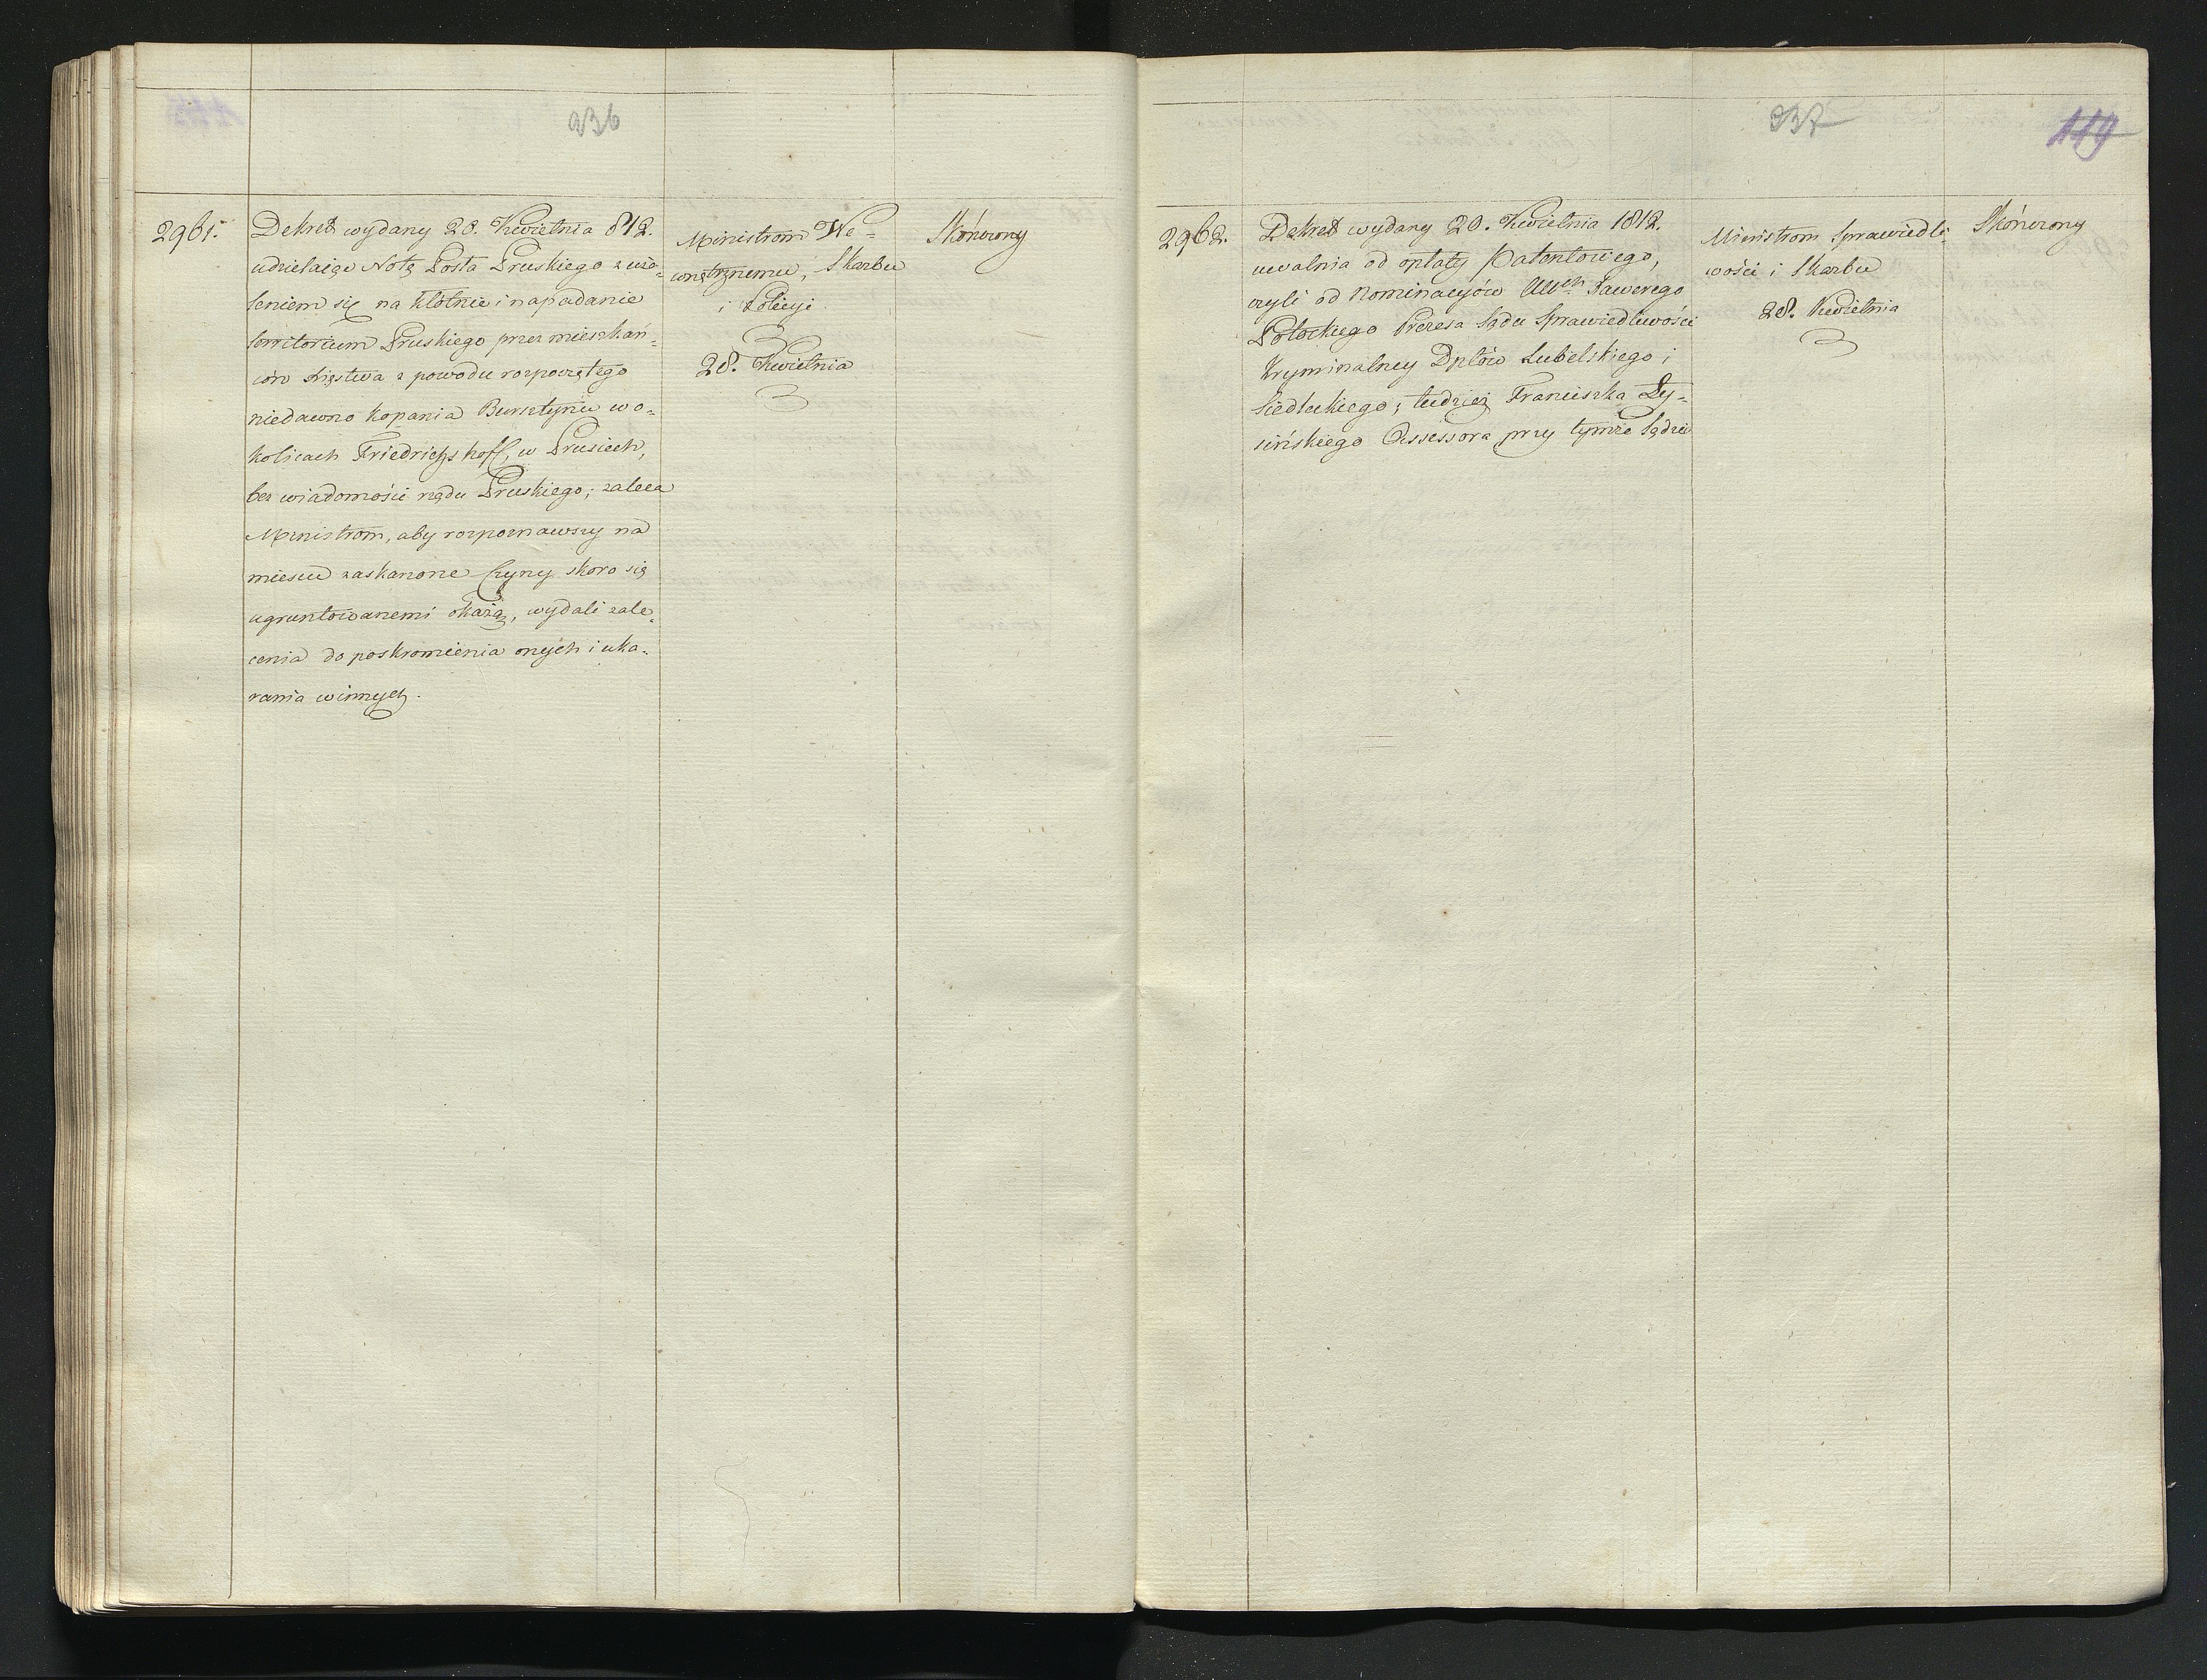 236
2961.
Dekret wydany 28. Kwietnia 812.
udzielaiąc Notę Posła Pruskiego z uża=
leniem się na kłótnie i napadanie
territorium Pruskiego przez mieszkań=
ców Xięstwa z powodu rozpoczętego
niedawno kopania Bursztynu w o=
kolicach Friedrichshoff, w Prusiech,
bez wiadomości rządu Pruskiego; zaleca
Ministrom, aby rozpoznawszy na
miescu zaskarzone Czyny skoro się
ugruntowanemi okażą, wydali zale=
cenia do poskromienia onych i uka=
rania winnych.
Ministrom We=
wnętrznemu, Skarbu
i Policyi
28. Kwietnia
Skończony
237
119
2962.
Dekret wydany 20. Kwietnia 1812.
uwalnia od opłaty Patentowego,
czyli od Nominacyów Xawerego
Potockiego Prezesa Sądu Sprawiedliwości
Kryminalney Dptów Lubelskiego i
Siedleckiego; tudzież Franciszka Ły=
sińskiego Assessora przy tymże Sądzie
Ministrom Sprawiedli=
wości i Skarbu
28. Kwietnia
Skończony